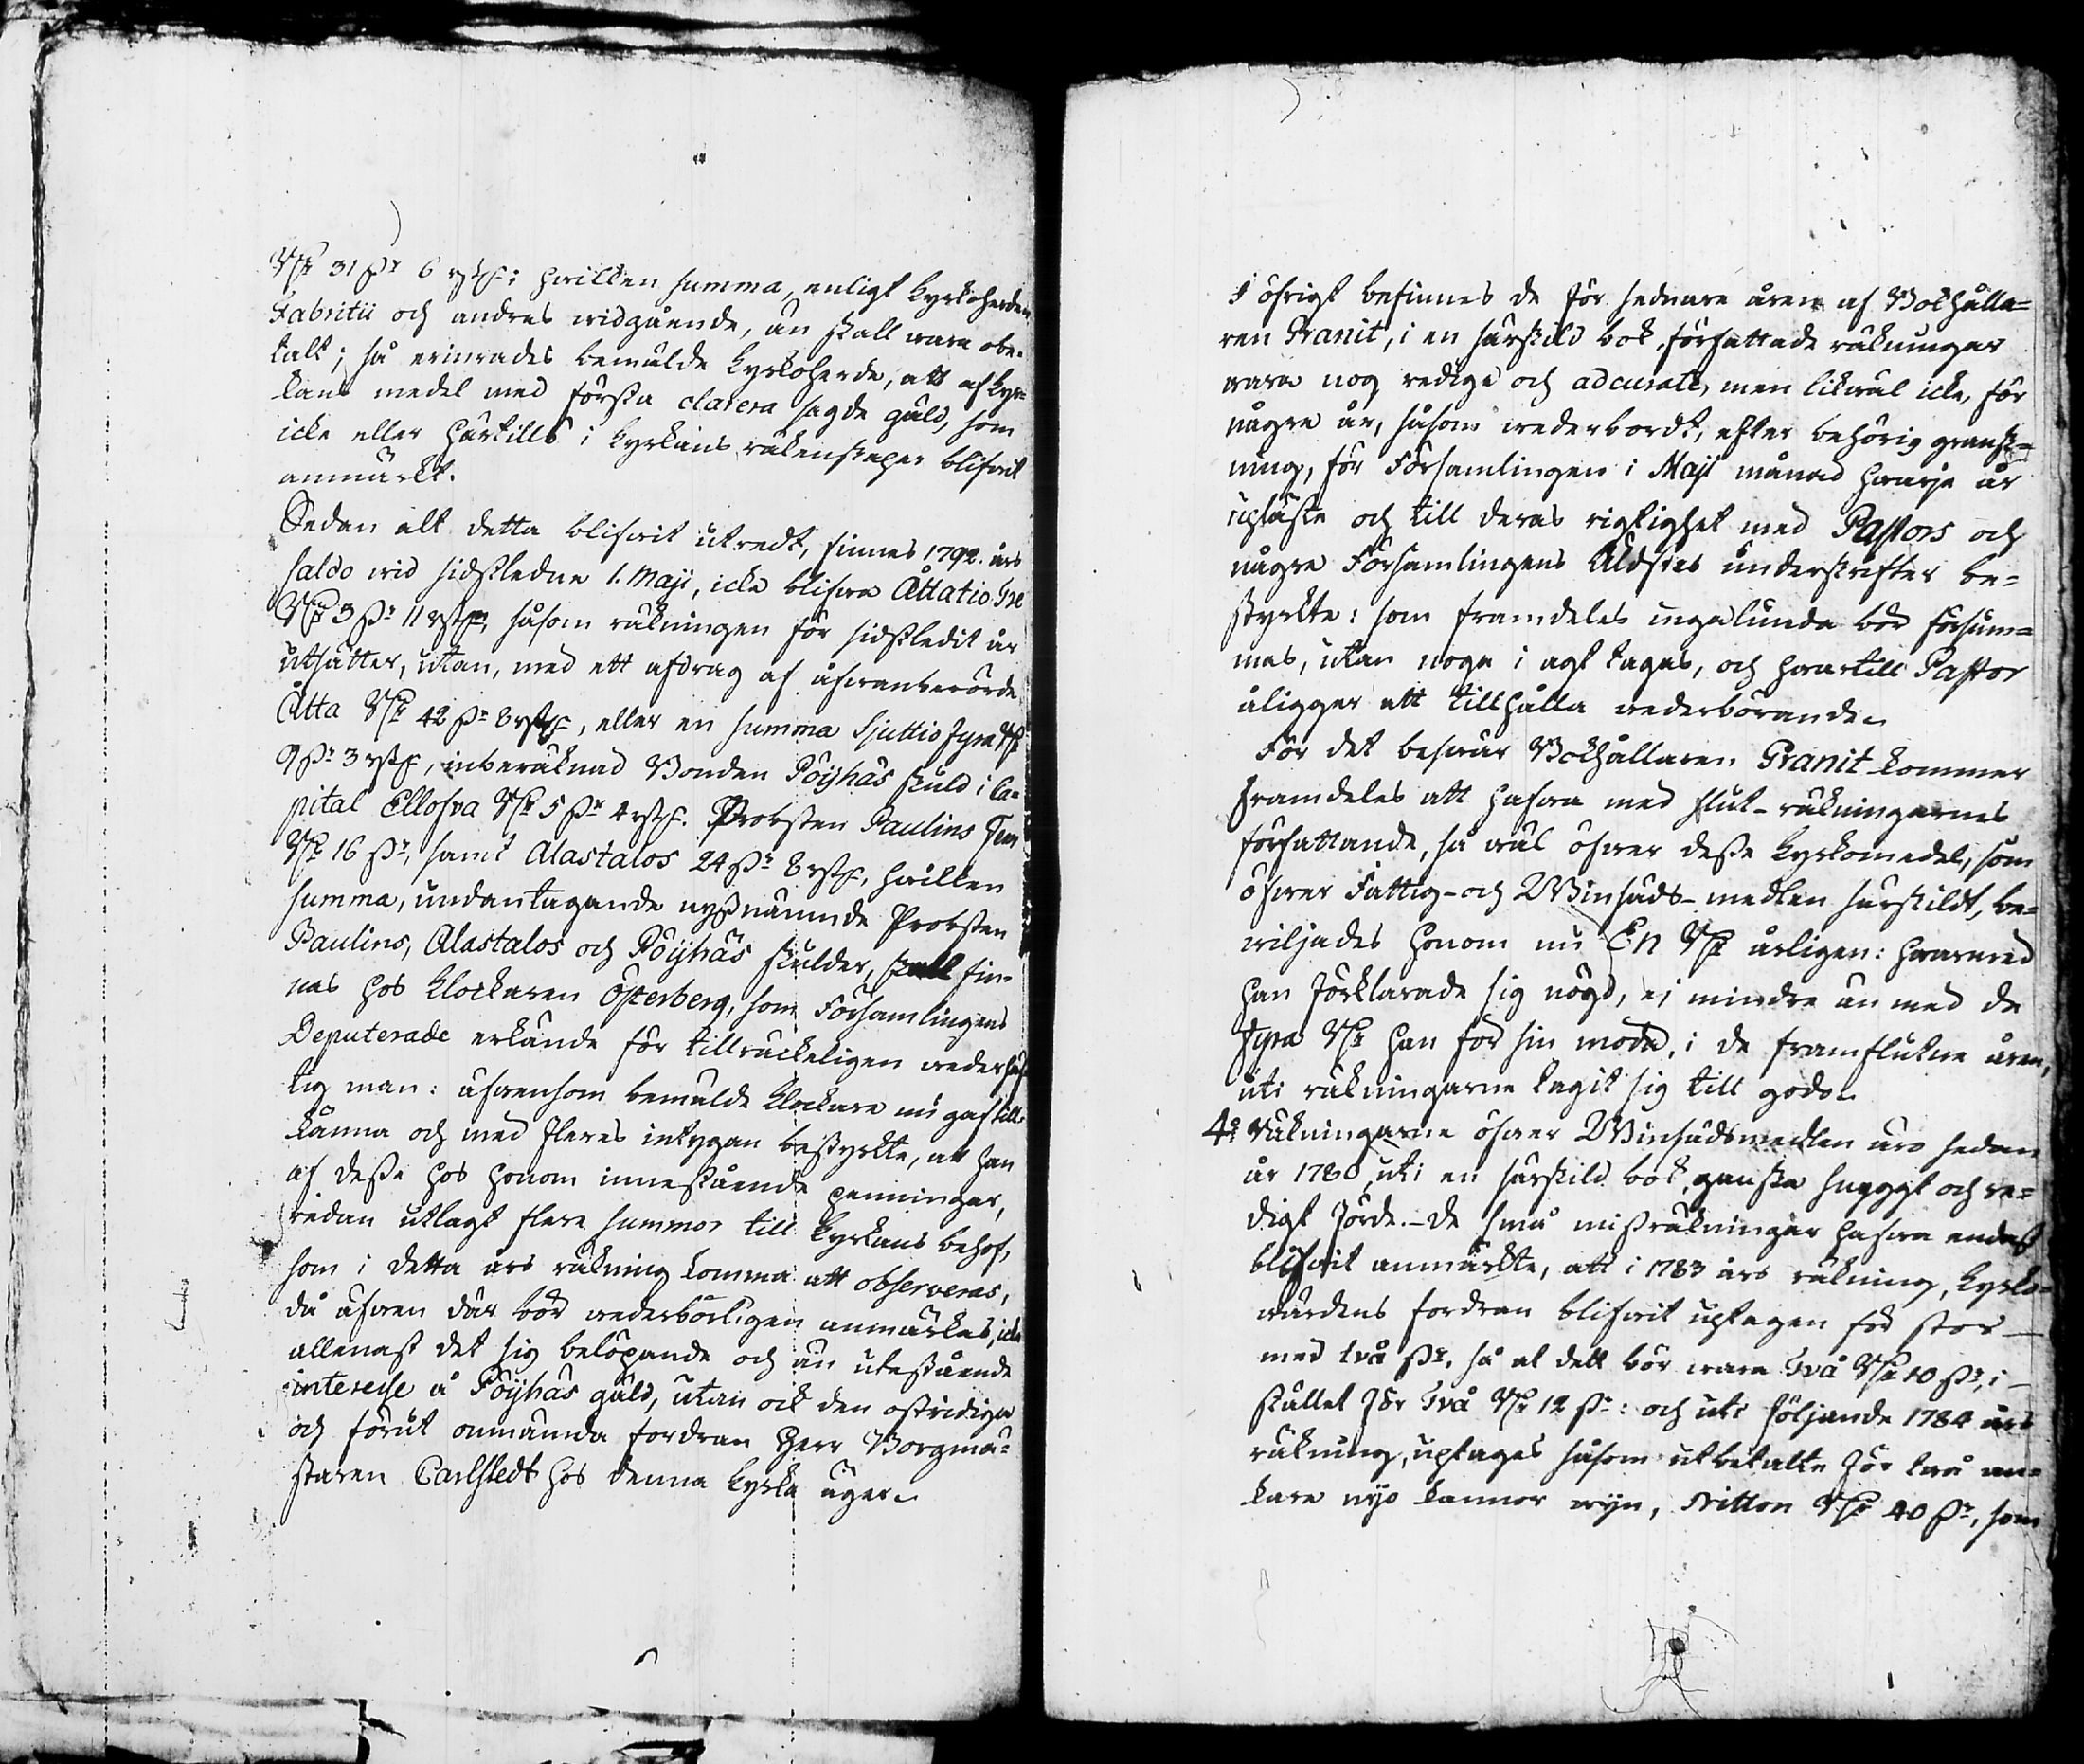 Rdr 31 ßr 6 rstr: hwilken summa, enligt Kyrkoherden
Fabritii och andras widgående, än skall wara obe-
talt; så erinrades bemälde Kyrkoherde, att af Kyr-
kans medel med första clarera sagde gäld, som
icke eller härtills i Kyrkans räkenskaper blifwit
anmärkt.
Sedan alt detta blifwit utredt, finnes 1792. års
saldo wid sidstledne 1. Maji, icke blifwa Åttatio Tre
Rdr 3 ßr 11 rstr, såsom räkningen för sidstledit år
utsätter, utan, med ett afdrag af åfwanberörde
Åtta Rdr 42 ßr 8 rstr, eller en summa Sjuttio fyra Rdr
9 ßr 3 rstr, inberäknad Bonden Pöijhäs skuld i Ca-
pital Ellofva Rdr 5 ßr 4 rstr. Probsten Paulins Fem
Rdr 16 ßr, samt Alastalos 24 ßr 8 rstr, hwilken
summa, undantagande nyßnämnde Probsten
Paulins, Alastalos och Pöijhäs skulder, skall fin-
nas hos Klockaren Österberg, som Församlingens
Deputerade erkände för tillräckeligen wederhäf-
tig man: äfwensom bemälde Klockare nu gaf till-
känna och med fleres intygan bestyrkte, att han
af deße hos honom innestående penningar,
redan utlagt flere summor till Kyrkans behof,
som i detta års räkning komma att observeras,
då äfwen där bör wederbörligen anmärkas, icke
allenast det sig belöpande och än utestående
interesse å Pöijhäs gäld, utan ock den ostridiga
och förut omnämnda fordran Herr Borgmä-
staren Carlstedt hos denna Kyrka äger.
I öfrigt befinnes de för sednare åren af Bokhålla-
ren Granit, i en särskild bok, författade räkningar
wara nog redige och adcurate, men likwäl icke, för
någre år, såsom wederbordt, efter behörig gransk-
ning, för Församlingen i Maji månad hwarje år
upläste och till deras rigtighet med Pastors och
någre Församlingens Äldstes underskrifter be-
styrkte: som framdeles ingalunda bör försum-
mas, utan noga i agt tagas, och hwartill Pastor
åligger att tillhålla wederbörande.
För det beswär Bokhållaren Granit kommer
framdeles att hafwa med slut-räkningarnes
författande, så wäl öfwer deße Kyrkomedel, som
öfwer Fattig- och Winsäds-medlen särskildt, be-
wiljades honom nu En Rdr årligen: hwarmed
han förklarade sig nögd, ej mindre än med de
fyra Rdr han för sin möda, i de framflutne åren,
uti räkningarne tagit sig till godo.
4o Räkningarne öfwer Winsädsmedlen äro sedan
år 1780, uti en särskild bok, ganska snyggt och re-
digt förde. - De små mißräkningar hafwa endast
blifwit anmärkte, att i 1783 års räkning, Kyrko-
wärdens fordran blifwit uptagen för stor
med två ßr, så at dett bör wara Två Rdr 10 ßr, i
stället för Två Rdr 12 ßr: och uti följande 1784 års
räkning, uptages såsom utbetalte för två an-
kare nijo kannor wijn, Nitton Rdr 40 ßr, som